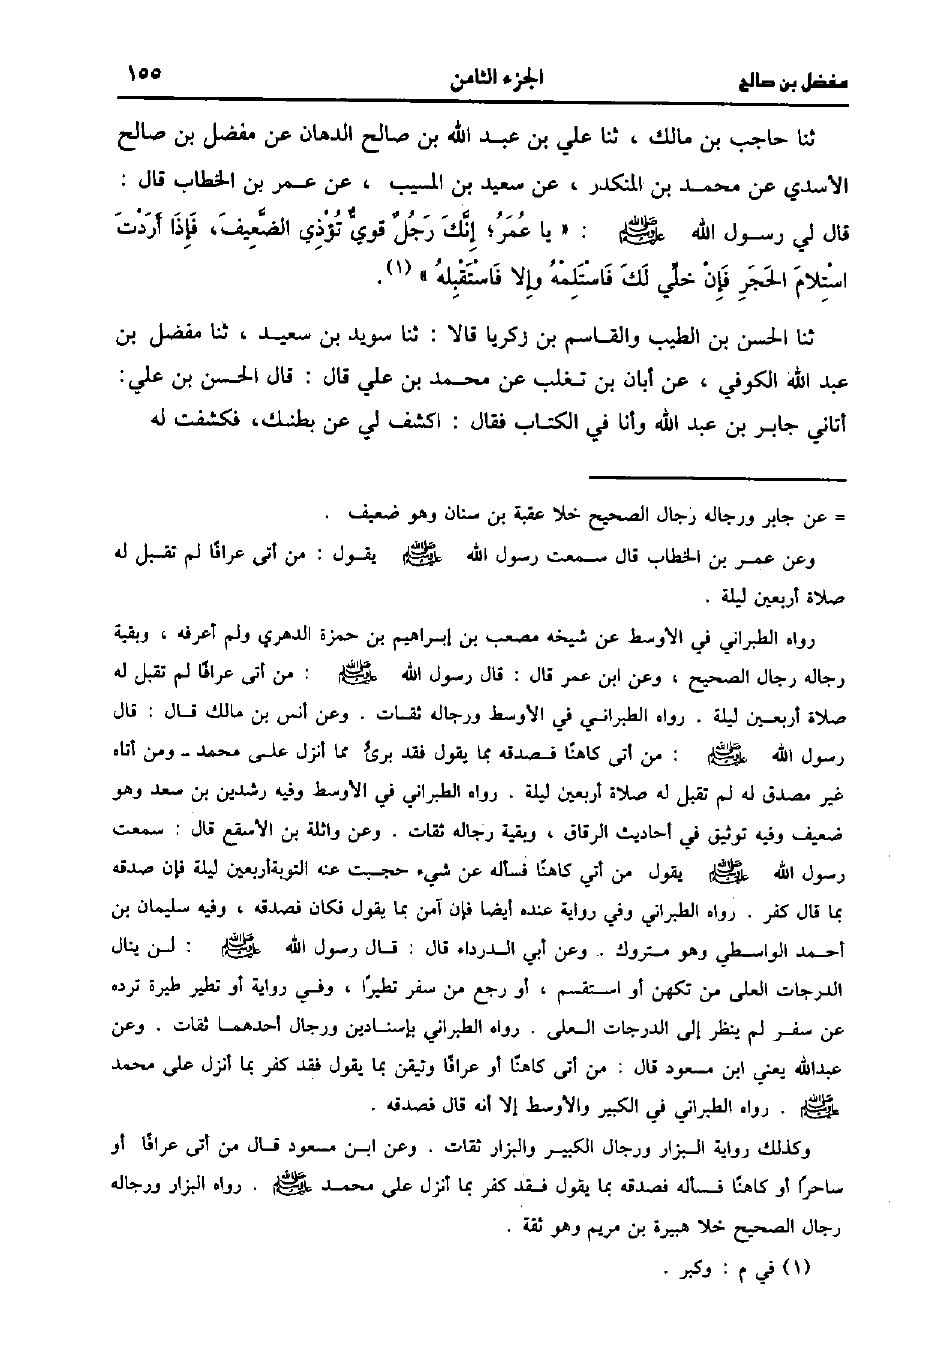 مفضل بن صالح الجزء الثامن ١٥٥
ثنا حاجب بن مالك ، ثنا علي بن عبد الله بن صالح الدهان عن مفضل بن صالح
الأسدي عن محمد بن المنكدر ، عن سعيد بن المسيب ، عن عمر بن الخطاب قال :
قال لي رسول الله ﷺ : « يا عُمَرُ؛ إِنَّكَ رَجُلٌ قويٌّ تُؤْذِي الضَّعِيفَ، فَإِذَا أَرَدْتَ
اسْتِلامَ الحَجَرِ فَإِنْ خَلَّي لَكَ فَاسْتَلِمْهُ وإلا فَاسْتَقْبِلهُ » (١).
ثنا الحسن بن الطيب والقاسم بن زكريا قالا : ثنا سويد بن سعيد ، ثنا مفضل بن
عبد الله الكوفي ، عن أبان بن تغلب عن محمد بن علي قال : قال الحسن بن علي:
أتاني جابر بن عبد الله وأنا في الكتاب فقال : اكشف لي عن بطنك، فكشفت له
= عن جابر ورجاله رجال الصحيح خلا عقبة بن سنان وهو ضعيف .
وعن عمر بن الخطاب قال سمعت رسول الله ﷺ يقول : من أتى عرافًا لم تقبل له
صلاة أربعين ليلة .
رواه الطبراني في الأوسط عن شيخه مصعب بن إبراهيم بن حمزة الدهري ولم أعرفه ، وبقية
رجاله رجال الصحيح ، وعن ابن عمر قال : قال رسول الله ﷺ : من أتى عرافًا لم تقبل له
صلاة أربعين ليلة . رواه الطبراني في الأوسط ورجاله ثقات . وعن أنس بن مالك قال : قال
رسول الله ﷺ : من أتى كاهنًا فصدقه بما يقول فقد برئ مما أنزل على محمد - ومن أتاه
غير مصدق له لم تقبل له صلاة أربعين ليلة . رواه الطبراني في الأوسط وفيه رشدين بن سعد وهو
ضعيف وفيه توثيق في أحاديث الرقاق ، وبقية رجاله ثقات . وعن واثلة بن الأسقع قال : سمعت
رسول الله ﷺ يقول من أتي كاهنًا فسأله عن شيء حجبت عنه التوبةأربعين ليلة فإن صدقه
بما قال كفر . رواه الطبراني وفي رواية عنده أيضا فإن آمن بما يقول فكان فصدقه ، وفيه سليمان بن
أحمد الواسطي وهو متروك . وعن أبي الدرداء قال : قال رسول الله ﷺ : لن ينال
الدرجات العلى من تكهن أو استقسم ، أو رجع من سفر تطيرًا ، وفي رواية أو تطير طيرة ترده
عن سفر لم ينظر إلى الدرجات العلى . رواه الطبراني بإسنادين ورجال أحدهما ثقات . وعن
عبدالله يعني ابن مسعود قال : من أتى كاهنًا أو عرافًا وتيقن بما يقول فقد كفر بما أنزل على محمد
ﷺ . رواه الطبراني في الكبير والأوسط إلا أنه قال فصدقه .
وكذلك رواية البزار ورجال الكبير والبزار ثقات . وعن ابن مسعود قال من أتى عرافًا أو
ساحرًا أو كاهنًا فسأله فصدقه بما يقول فقد كفر بما أنزل على محمد ﷺ . رواه البزار ورجاله
رجال الصحيح خلا هبيرة بن مريم وهو ثقة .
(١) في م : وكبر .